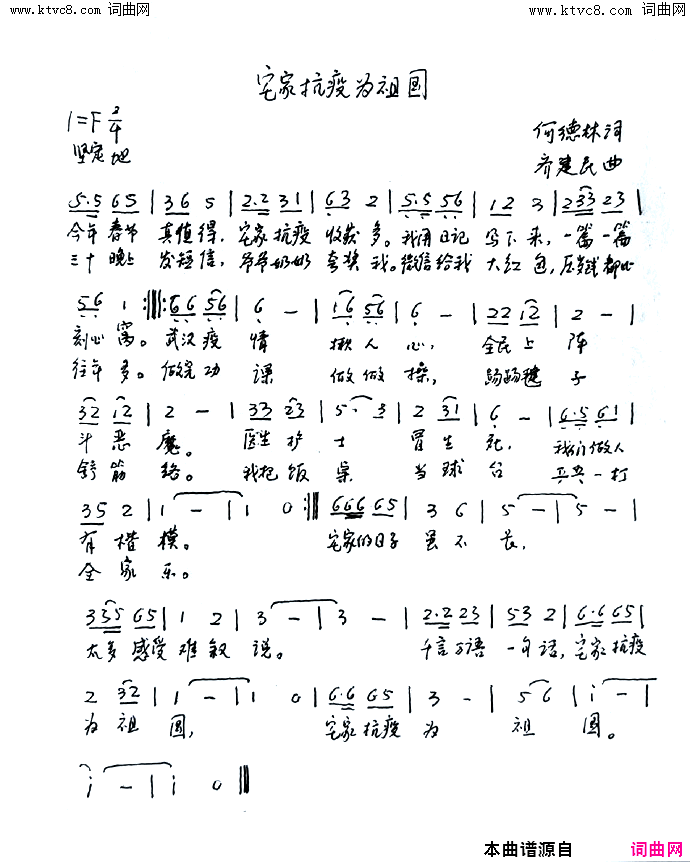 www.ktvc8.com 词曲网 www.ktvc8.com 词曲网
宅家抗疫为祖国
1=F 2/4 何德林词
坚定地 齐建民曲
5.5 65 | 36 5 | 2.2 31 | 63 2 | 5.5 56 | 12 3 | 233 23 |
今年春节 真值得，宅家抗疫 收获多。我用日记 写下来，一篇一篇
三十晚上 发短信，爷爷奶奶 夸奖我。微信给我 大红包，压岁钱都比
56 1 :||: 66 56 | 6 - | 16 56 | 6 - | 22 12 | 2 - |
刻心窝。武汉疫情 揪人心，全民上阵
往年多。做完功课 做做操，踢踢毽子
32 12 | 2 - | 33 23 | 5. 3 | 2 31 | 6 - | 6.5 61 |
斗恶魔。医生护士 冒生死，我们做人
舒筋络。我把饭桌 当球台 乒乓一打
35 2 | 1 - | 1 0 :|| 666 65 | 3 6 | 5 - | 5 - |
有楷模。宅家的日子 虽不长，
全家乐。
335 65 | 1 2 | 3 - | 3 - | 2.2 23 | 53 2 | 6.6 65 |
太多感受难叙说。千言万语 一句话，宅家抗疫
2 32 | 1 - | 1 0 | 6.6 65 | 3 - | 5 6 | i - |
为祖国，宅家抗疫为祖国。
i - | i 0 ||
本曲谱源自 词曲网